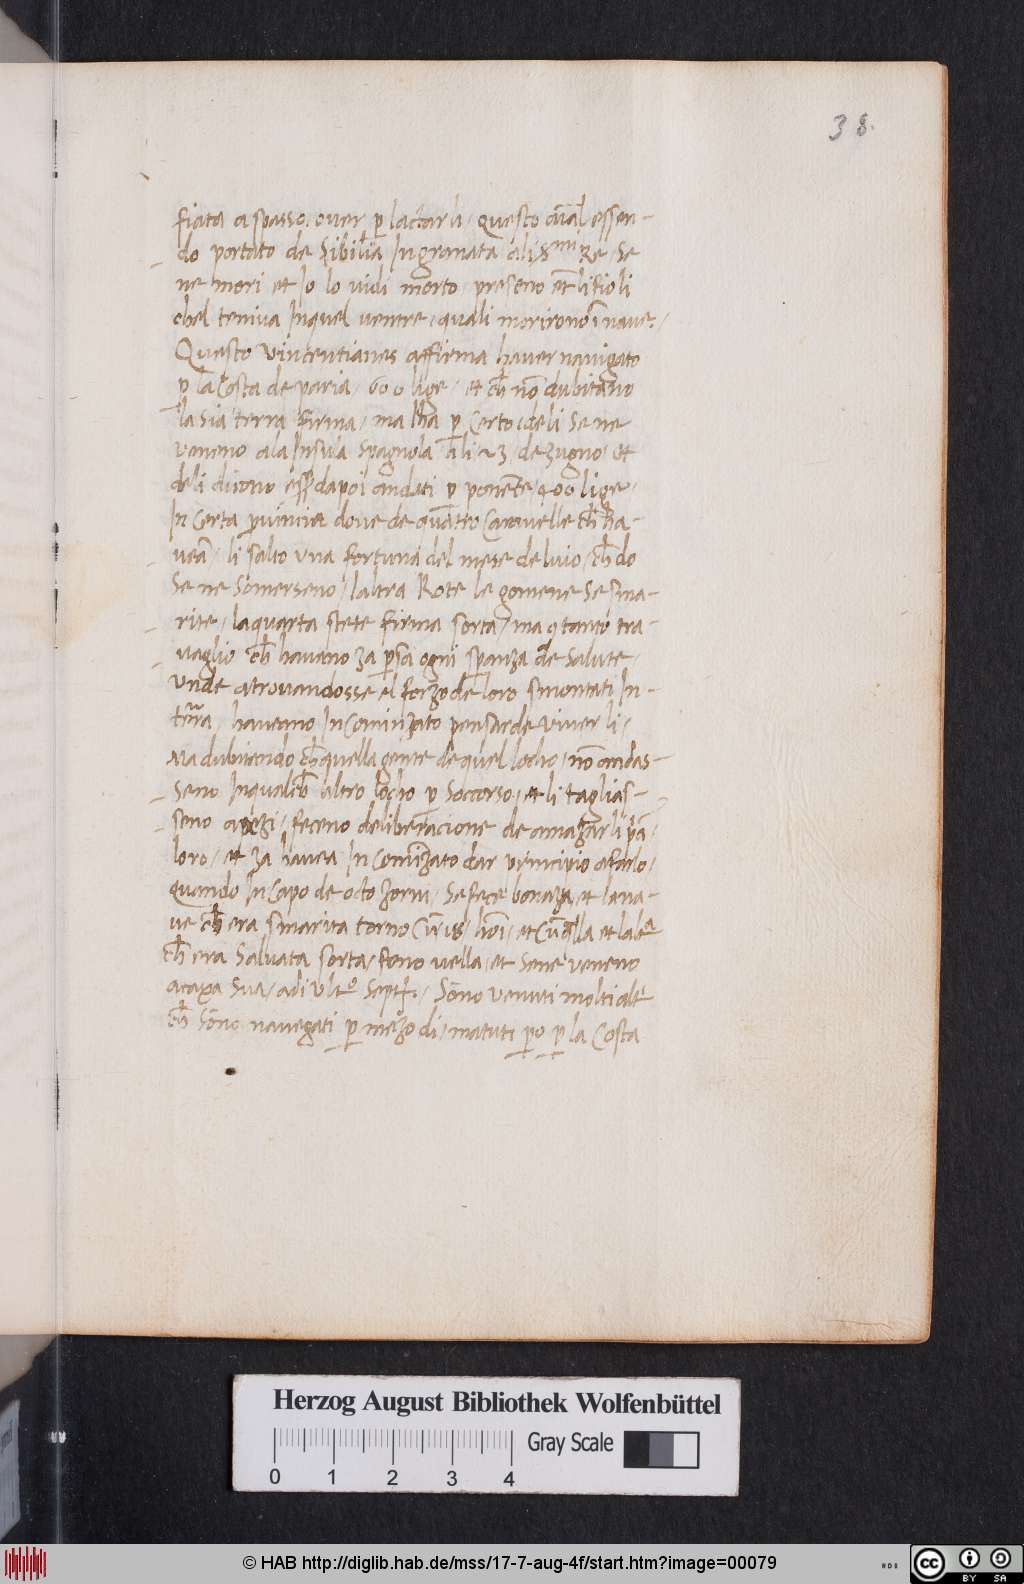 38.
fiata a spasso, over p̱ lactarli. questo aīal essen-
do portato de Sibilia In granata ali Sᵐⁱ Re, Se
ne mori et Io lo vidi morto, preseno et̄ li fioli
chel teniva Inquel ventre, quali morirono ī nave.
Questo Vincentianes affirma haver navigato
p̱ la Costa de paria, 600 lige, et ch̄ nō dubitano
la sia terra firma, ma lha p̱ Certo, deli Se ne
veneno ala Insula Spagnola ali 23 de zugno, et
deli dicono esser̄ dapoi andati p̱ ponente 400 lige,
In Certa p̱vincia dove de quattro Caravelle ch̄ ha-
veā, li salto una fortuna del mese de luio, ch̄ do
Se ne Somerseno, laltra Rote le gomene Se sma-
rite, la quarta stete firma sorta, ma cū tanto tra-
vaglio ch̄ havano za p̱sa ogni spanza de Salute,
Unde atrovandosse el forzo de loro smontati In-
terra, haveano In Cominzato pensar de viver li,
Ma dubitando ch̄ quella gente de quel locho, nō andas-
Seno Inqualch̄ altro locho p̱ Soccorso, et li tagliass-
seno apezi, feceno deliberacione de amazarli p̄a,
loro, et za havea In Cominzato dar principio a farlo,
quando In Capo de octo zorni, Se fece bonaza, et la na-
ve ch̄ era smarita torno Cū 18 hōi, et Cū q̄lla et laltᵃ
ch̄ era Salvata sorta, feno vella, et Sene veneno
acaxa Sua, adi ultᵒ Sept., Sōno venuti molti altⁱ
ch̄ Sōno navegati p̱ mezo di, ma tuti p̱o p̱ la Costa
Herzog August Bibliothek Wolfenbüttel
0 1 2 3 4 Gray Scale
© HAB http://diglib.hab.de/mss/17-7-aug-4f/start.htm?image=00079
cc BY SA